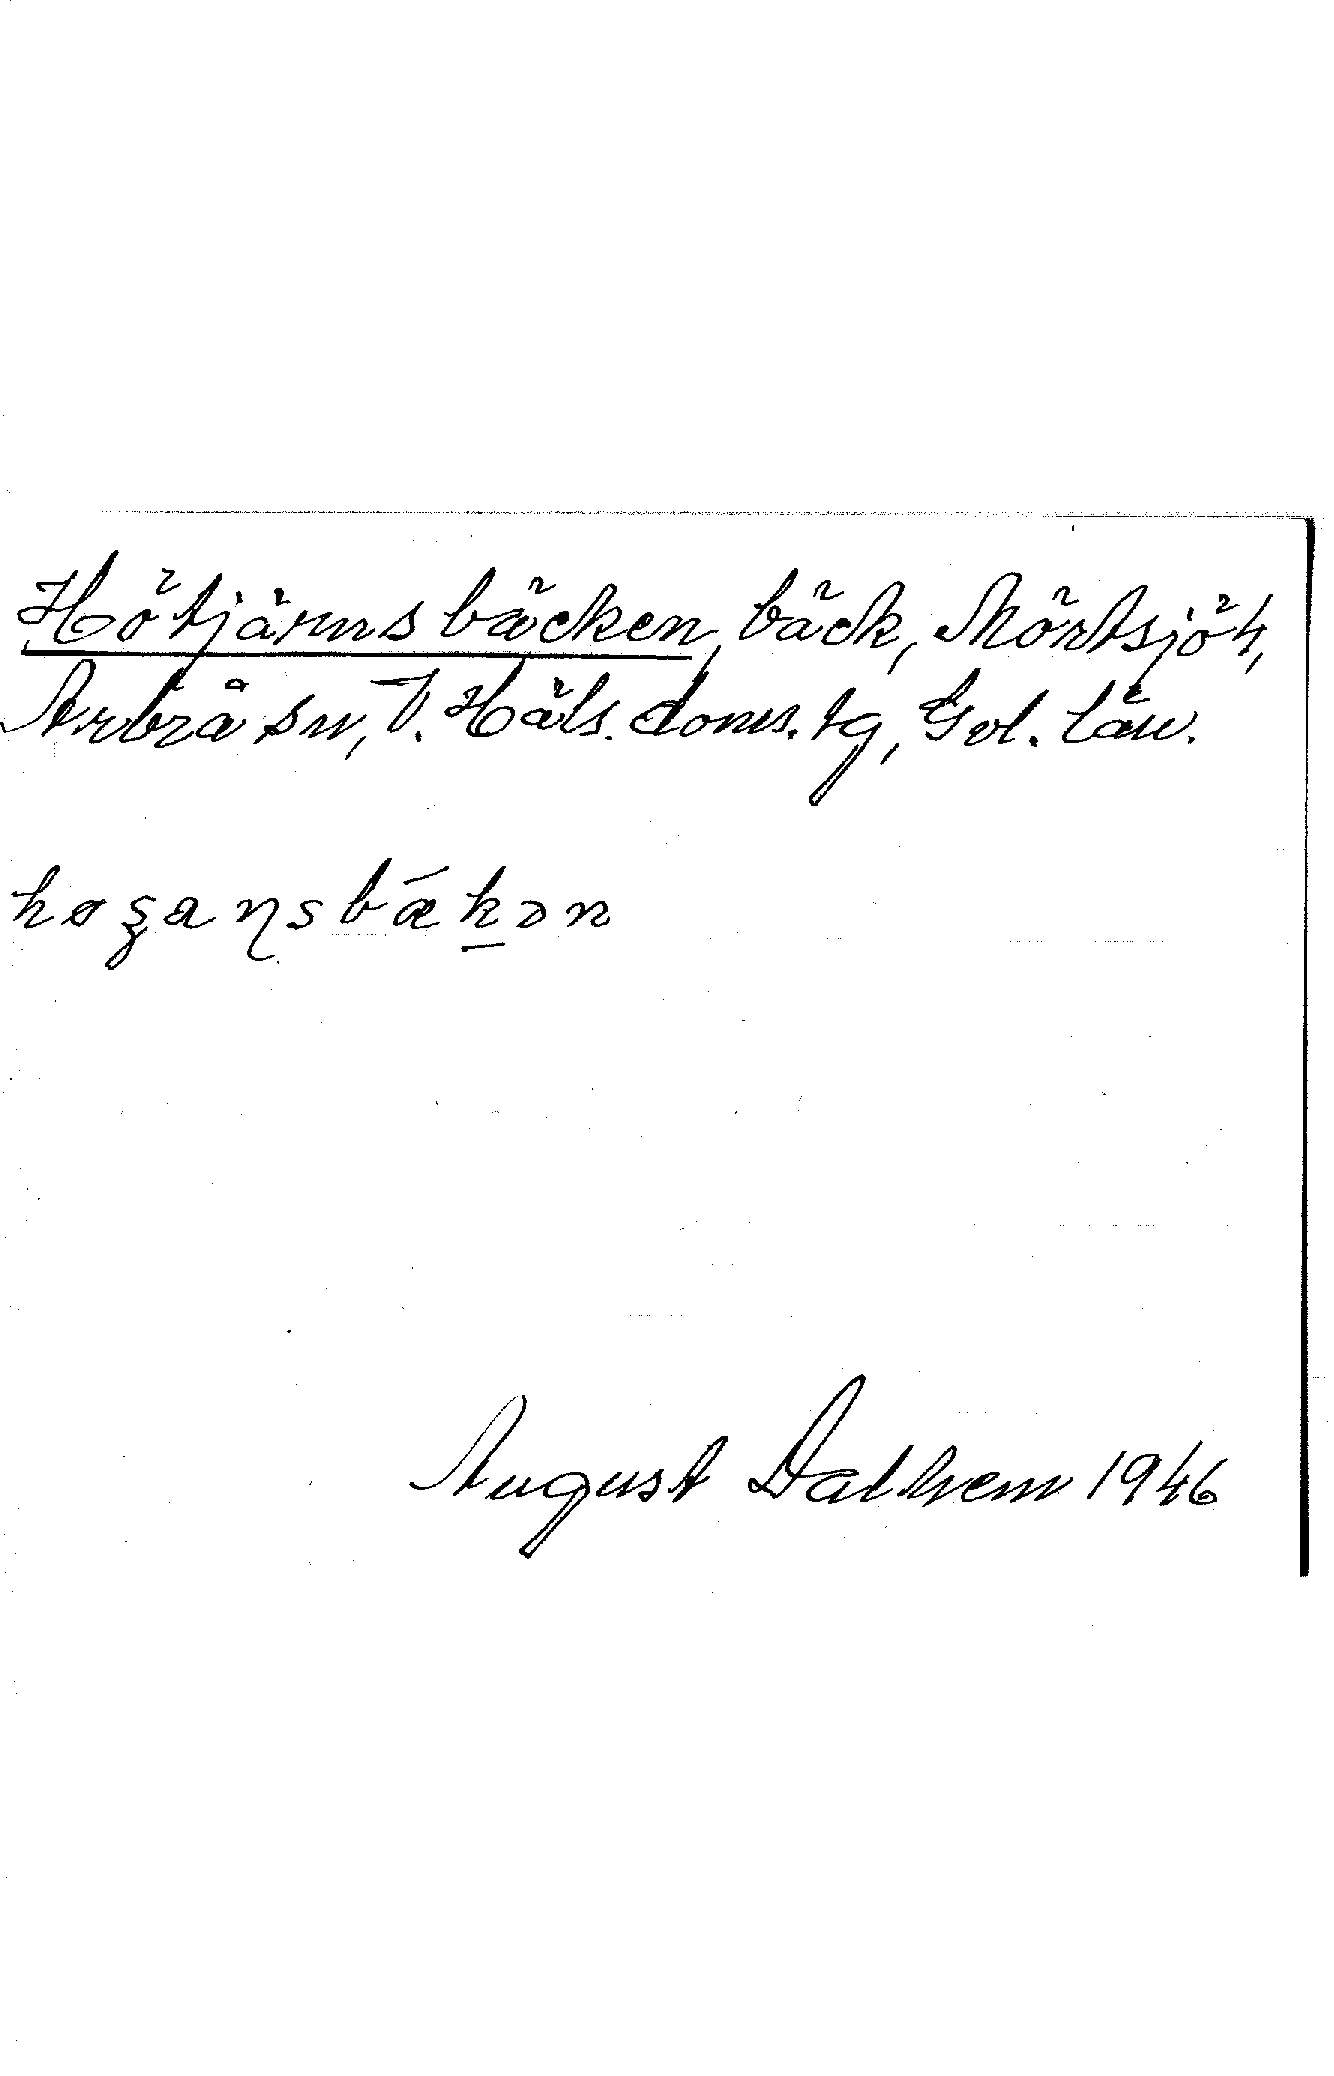 Hötjärnsbäcken, bäck, Mörtsjöh,
Arbrå sn, V. Häls. doms. tg, Gvl. län.
høʒaɳsbǽk̲ən
August Dalhem 1946